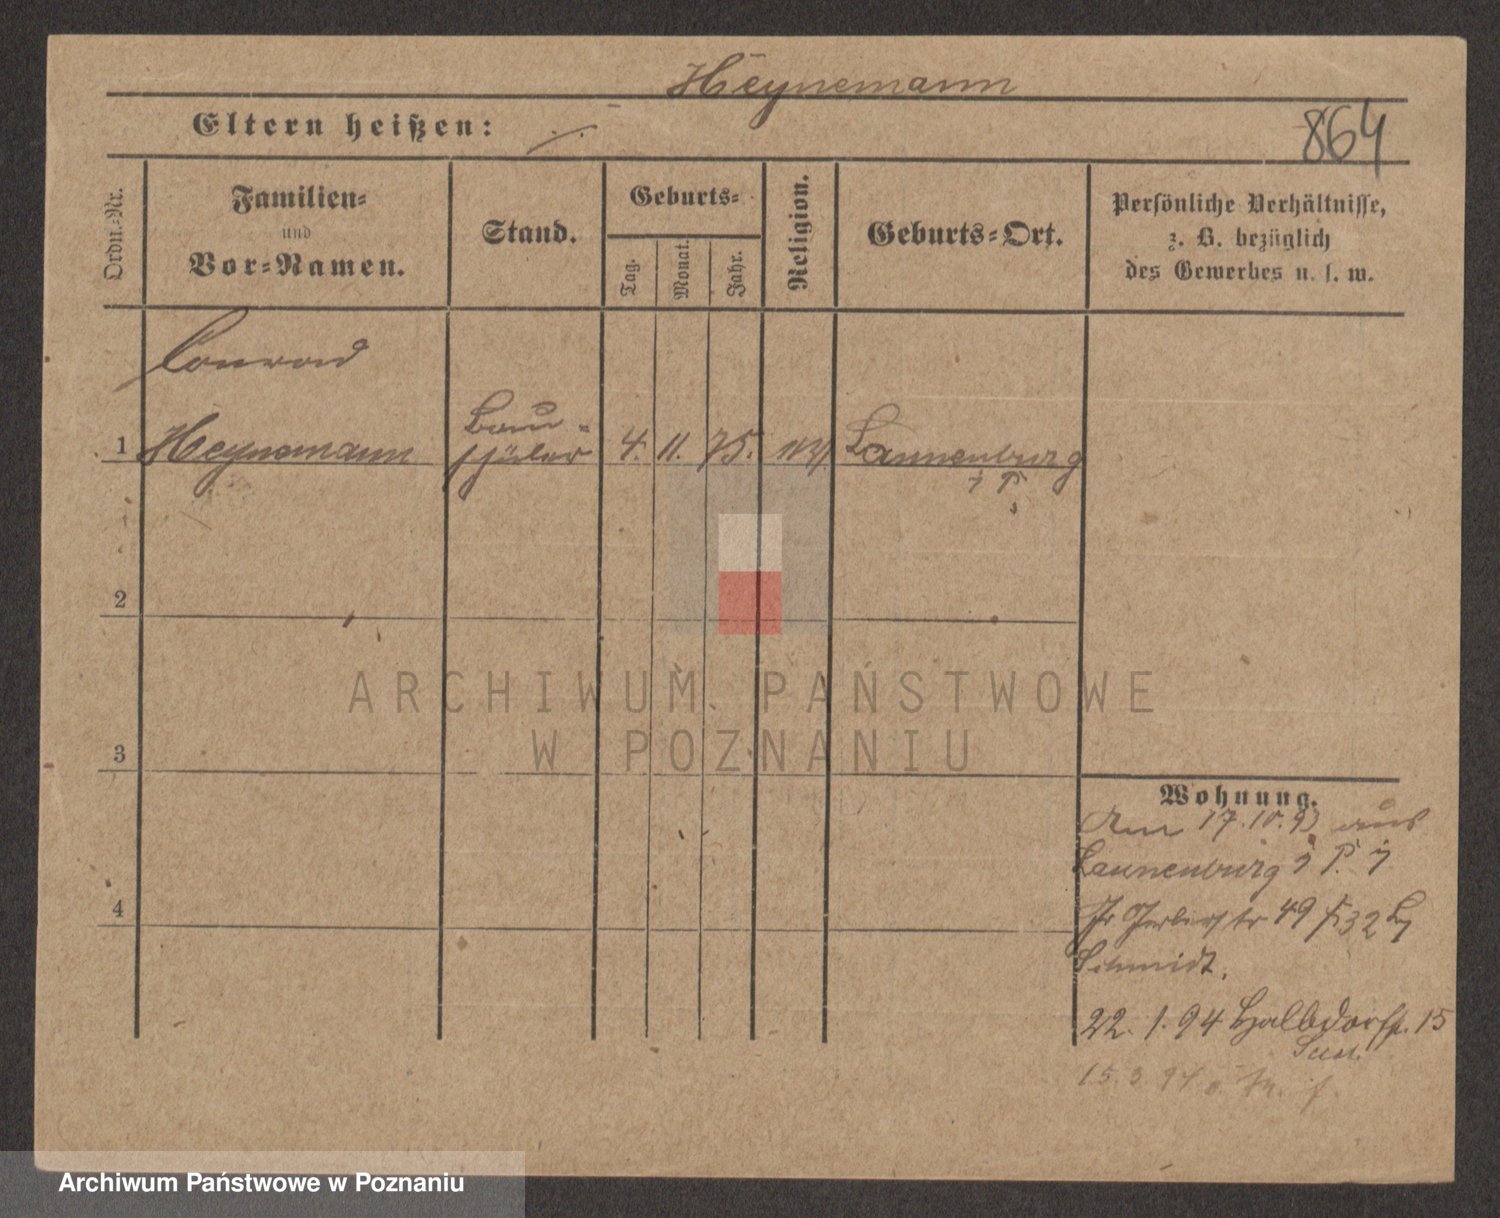 Heynemann
Eltern heißen: ./.
864
Ordn.-Nr.
Familien-
und
Vor-Namen.
Stand.
Geburts-
Tag.
Monat.
Jahr.
Religion.
Geburts-Ort.
Persönliche Verhältnisse,
z. B. bezüglich
des Gewerbes u. s. w.
Conrad
1 Heynemann
Bau-
schüler
4. 11. 75.
Lauenburg
i P.
2
3
4
Wohnung.
Am 17.10.93 aus
Lauenburg i P.
49 32
Schmidt.
22. 1. 94 Halbdorfstr. 15
15. 3. 94
ARCHIWUM PAŃSTWOWE
W POZNANIU
Archiwum Państwowe w Poznaniu